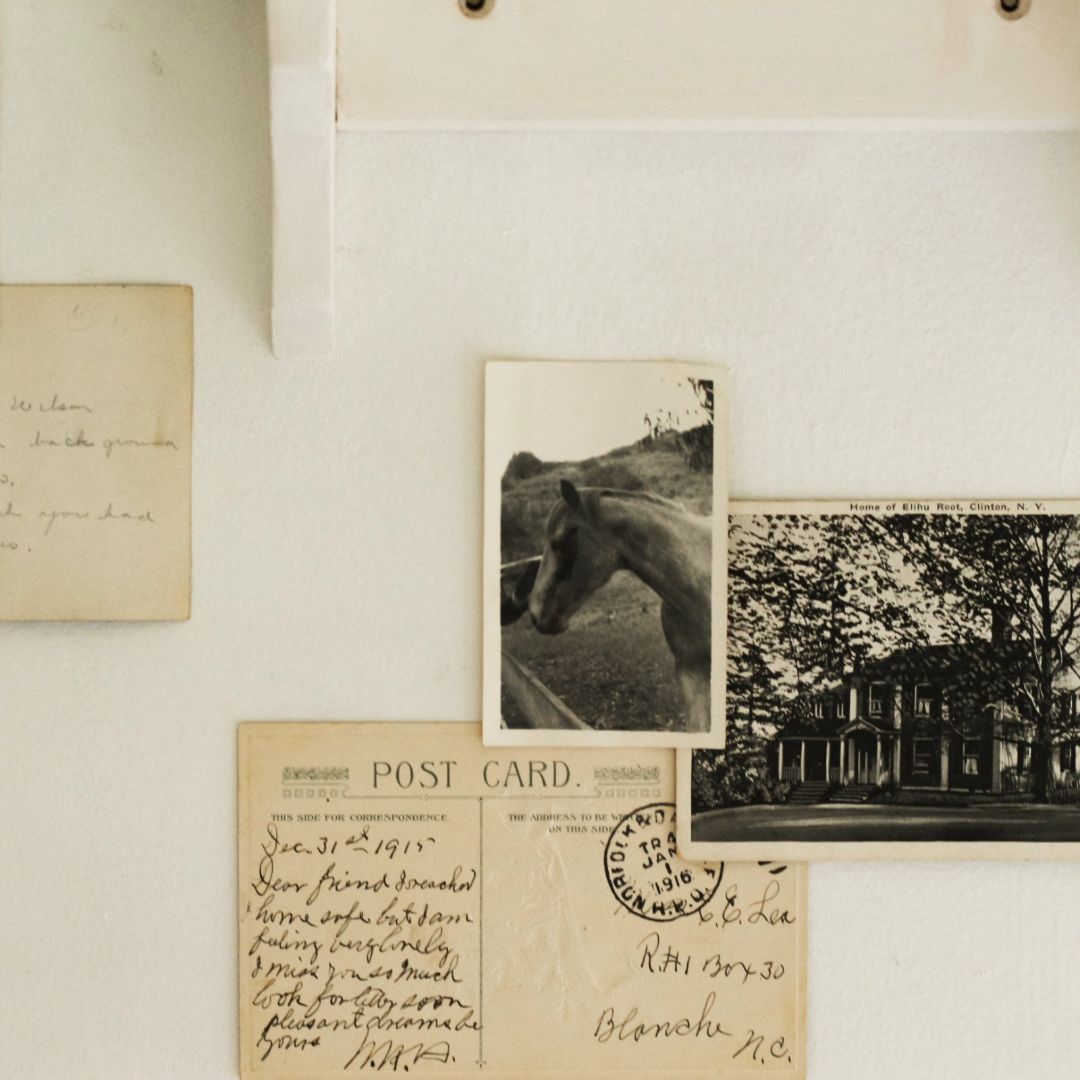 Wilson
background
Home of Elihu Root, Clinton, N. Y.
POST CARD.
THIS SIDE FOR CORRESPONDENCE.
Dec. 31st 1915
Dear friend I reached
home safe but I am
feeling very lonely
I miss you so much
look for letter soon
pleasant dreams be
yours
THE ADDRESS TO BE
ON THIS SIDE
NORFOLK
TR
JAN
1
1916
R.P.O.
C. E. Lea
R.#1 Box 30
Blanche
N.C.